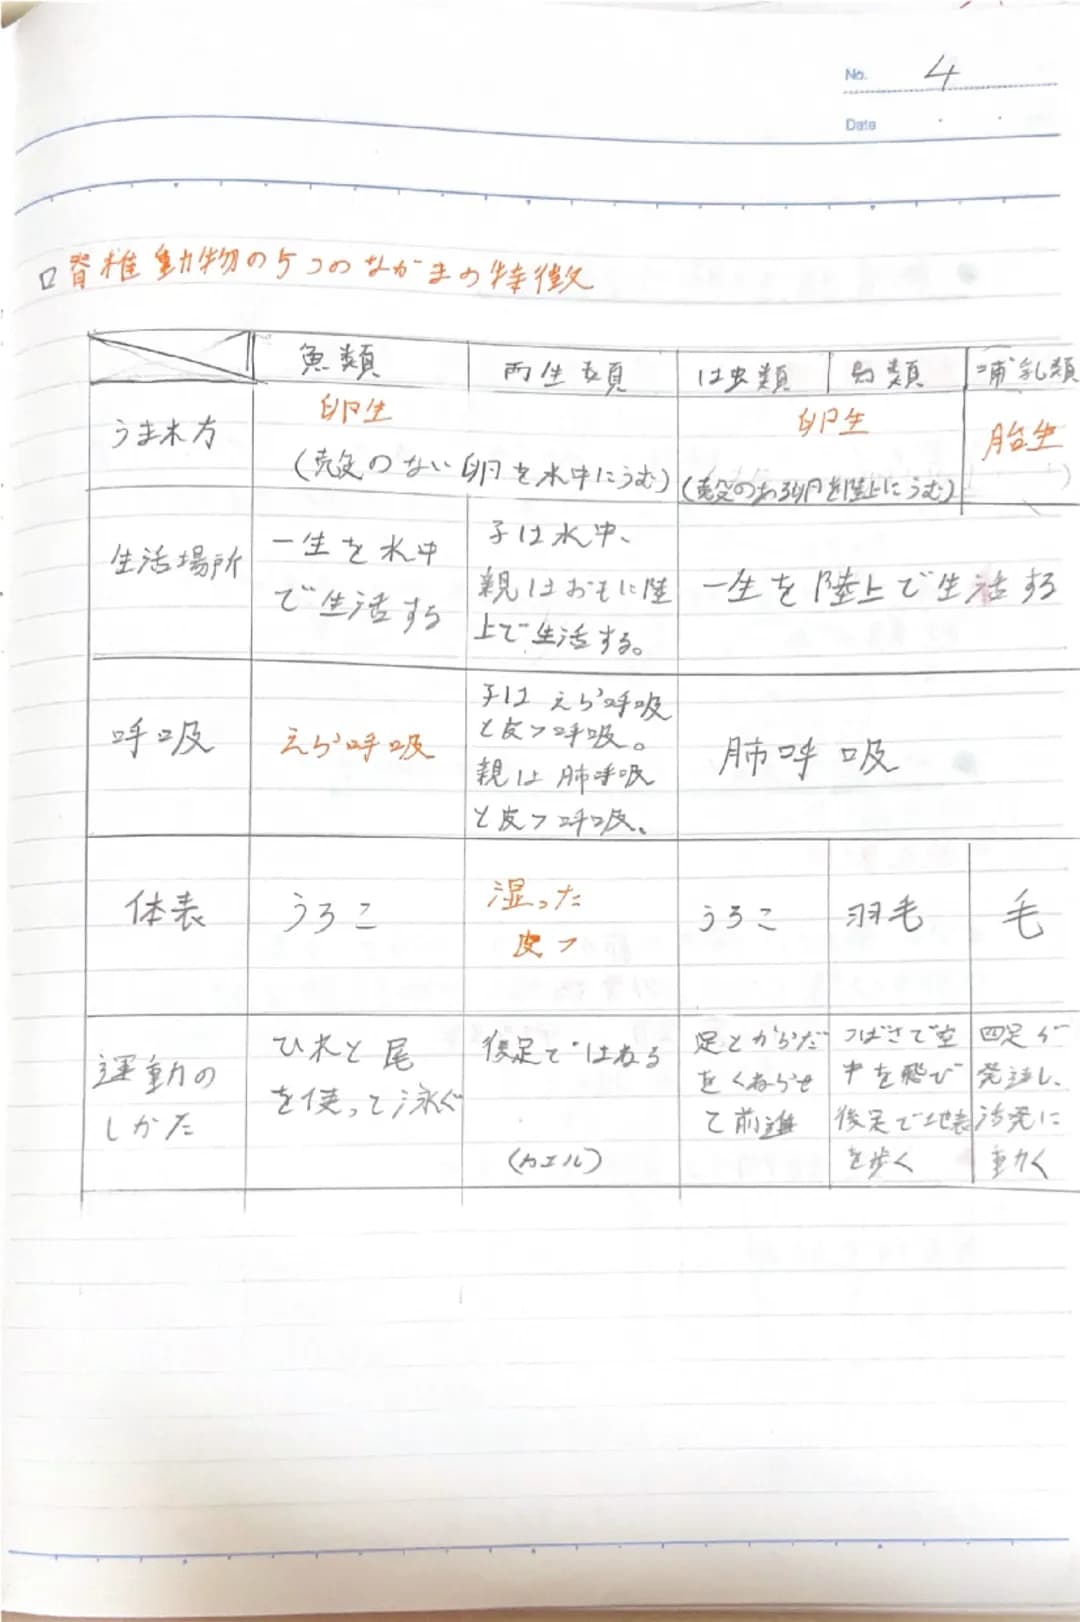 No. 4
Date
□ 脊椎動物の5つのなかまの特徴
魚類 両生類 は虫類 鳥類 哺乳類
うまれ方
卵生
(殻のない卵を水中にうむ)
卵生
(殻のある卵を陸上にうむ)
胎生
生活場所
一生を水中
で生活する
子は水中、
親はおもに陸
上で生活する。
一生を陸上で生活する
呼吸
えら呼吸
子はえら呼吸
と皮フ呼吸。
親は肺呼吸
と皮フ呼吸。
肺呼吸
体表
うろこ
湿った
皮フ
うろこ
羽毛
毛
運動の
しかた
ひれと尾
を使って泳ぐ
後足ではねる
(カエル)
足とからだ
をくねらせ
て前進
つばさで空
中を飛び
後足で地表
を歩く
四足が
発達し、
活発に
動く